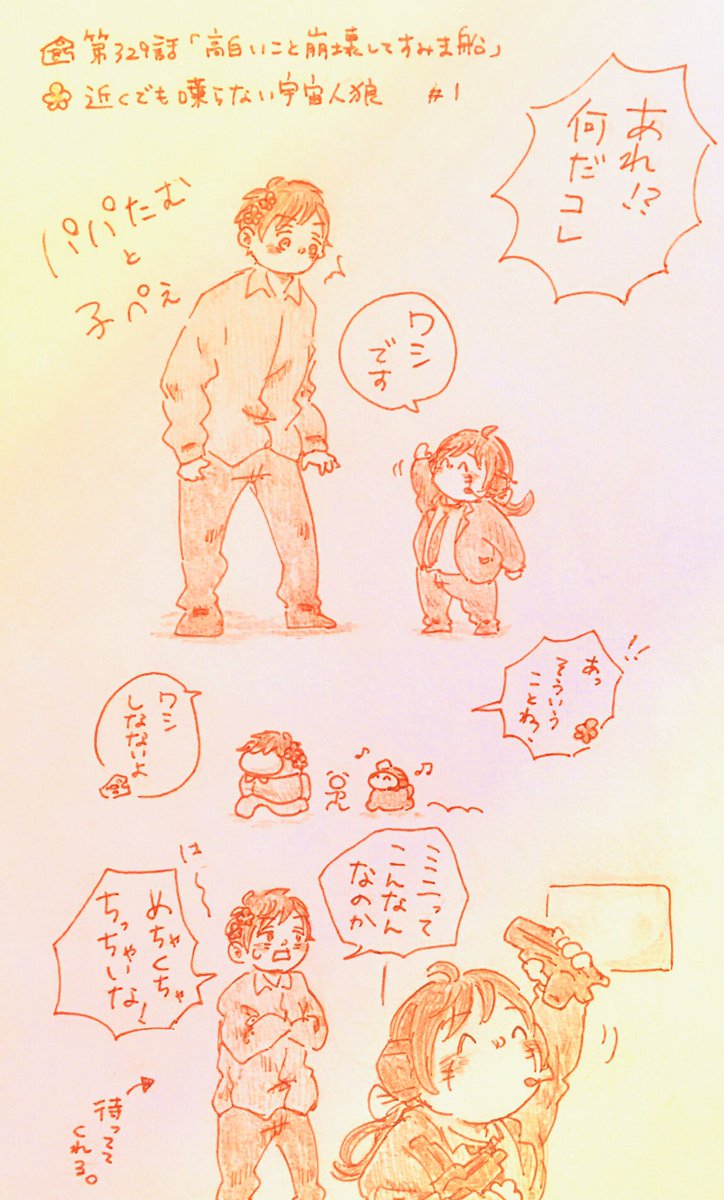 第329話「高白いこと崩壊してすみま船」
近くでも喋らない宇宙人狼 #1
あれ!?
何だコレ
パパたむ
と
子ぺぇ
ワシ
です
あっ
そういう
ことね?
!!
ワシ
しなないよ
♪
♫
ミミニって
こんなん
なのか
は〜
めちゃくちゃ
ちっちゃいな!
待ってて
くれる。